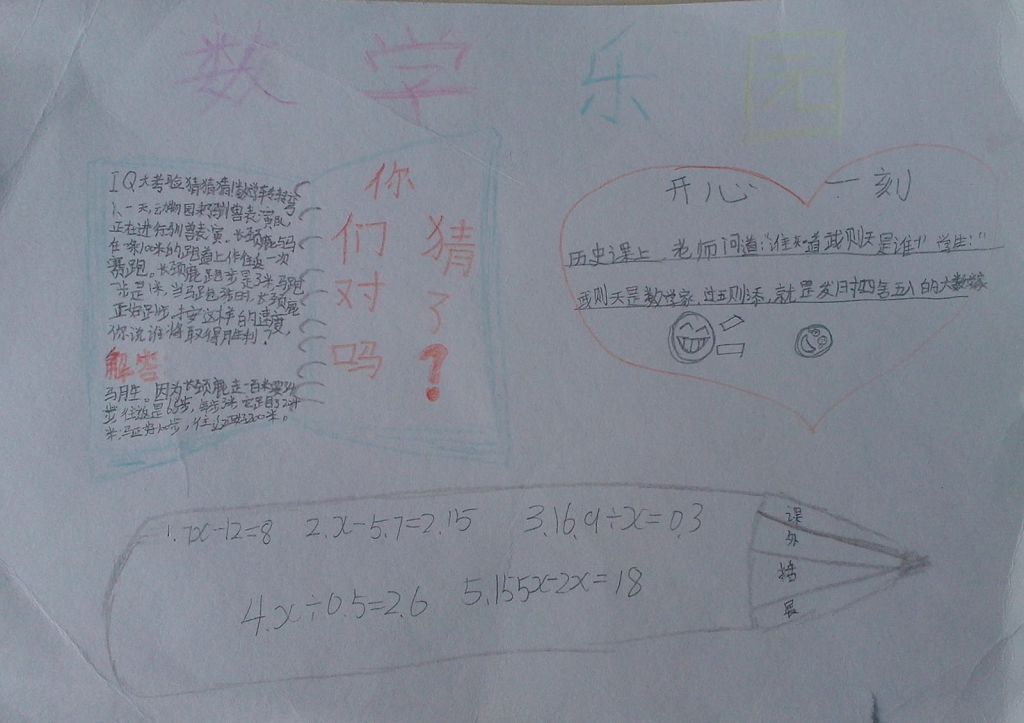 数学乐园
IQ大考验猜猜猜!数学转转弯
1、一天,动物园驯兽表演队
正在进行驯兽表演。长颈鹿与马
在一条100米的跑道上作往返一次
赛跑。长颈鹿跑步是3米,马跑
一步是1米,当马跑3步时,长颈鹿
正好跑1步,按这样的速度,
你说谁将取得胜利?
解答
马胜。因为长颈鹿走一百米要34
米;马正好100步,往返正好200米。
你
们
对
吗
猜
了
?
开心一刻
历史课上,老师问道:“谁知道武则天是谁!”学生:“
武则天是数学家,过五则添,就是发明四舍五入的大数学家
1.7x-12=8 2.x-5.7=2.15 3.16.9÷x=0.3
4.x÷0.5=2.6 5.155x-2x=18
课
外
拓
展